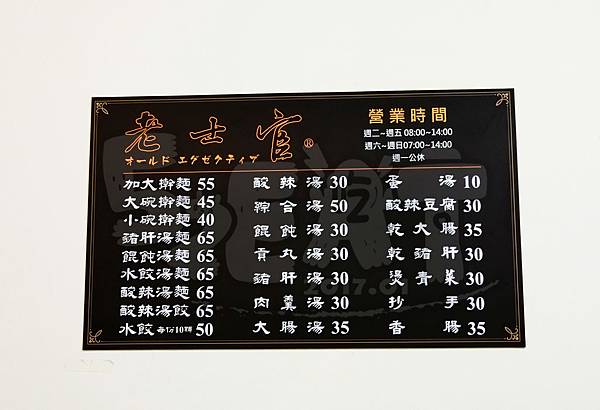 老士官®
オールド エグゼクティブ
營業時間
週二~週五 08:00~14:00
週六~週日07:00~14:00
週一公休
加大擀麵 55
大碗擀麵 45
小碗擀麵 40
豬肝湯麵 65
餛飩湯麵 65
水餃湯麵 65
酸辣湯麵 65
酸辣湯餃 65
水餃 每份10顆 50
酸辣湯 30
綜合湯 50
餛飩湯 30
貢丸湯 30
豬肝湯 30
肉羹湯 30
大腸湯 35
蛋湯 10
酸辣豆腐 30
乾大腸 35
乾豬肝 30
燙青菜 30
抄手 30
香腸 35
2017.01